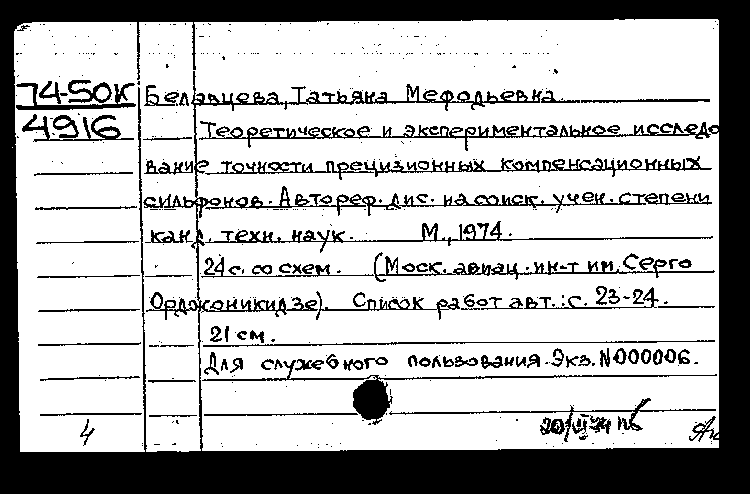 74-50К Белавцева, Татьяна Мефодьевна
4916 Теоретическое и экспериментальное исследо
вание точности прецизионных компенсационных
сильфонов. Автореф. дис. на соиск. учен. степени
канд. техн. наук. М., 1974.
24 с. со схем. (Моск. авиац. ин-т им. Серго
Орджоникидзе). Список работ авт.: с. 23-24.
21 см.
Для служебного пользования. Экз. N000006.
4